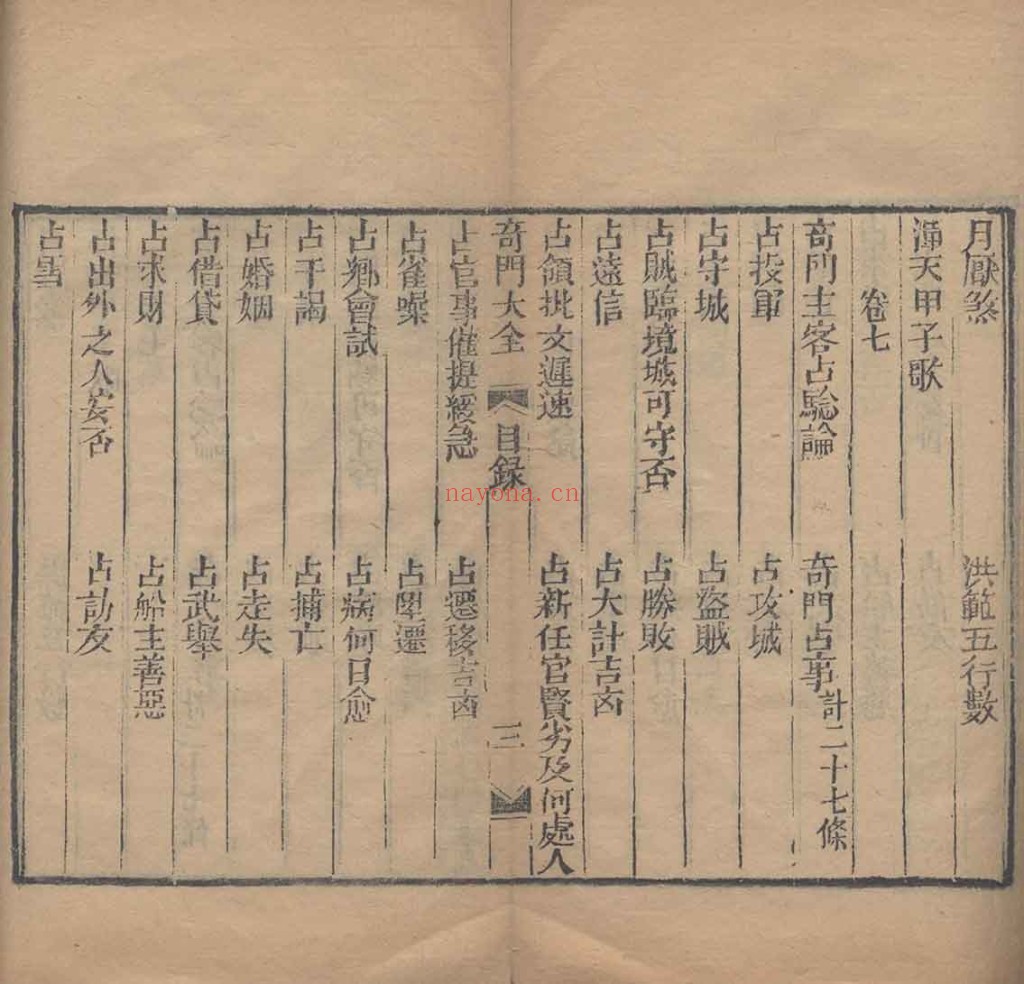 月厭煞　洪範五行數
渾天甲子歌
卷七
奇門主客占驗論　奇門占事計二十七條
占投軍　占攻城
占守城　占盜賊
占賊臨境城可守否　占勝敗
占遠信　占大計吉凶
占領批文遲速　占新任官賢劣及何處人
奇門大全　目錄　三
占官事催提緩急　占遷移吉凶
占雀噪　占陞遷
占鄉會試　占病何日愈
占干謁　占捕亡
占婚姻　占走失
占借貸　占武舉
占求財　占船主善惡
占出外之人安否　占訪友
占雪
nayona.cn